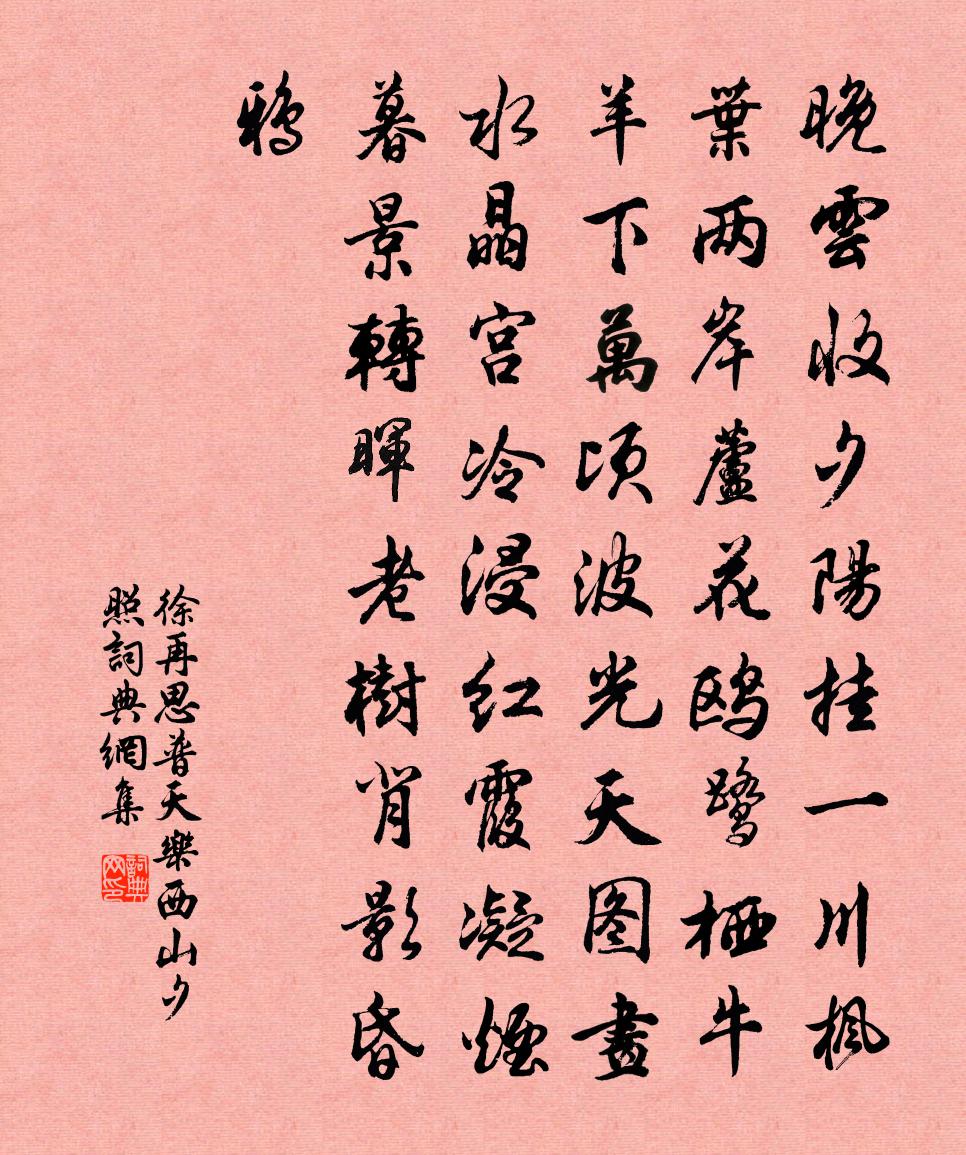 晚雲收夕陽挂一川楓
葉两岸蘆花鸥鹭栖牛
羊下萬顷波光天图畫
水晶宫冷浸红霞凝煙
暮景轉暉老樹肖影昏
鴉
徐再思普天樂西山夕
照詞典網集
詞典网印